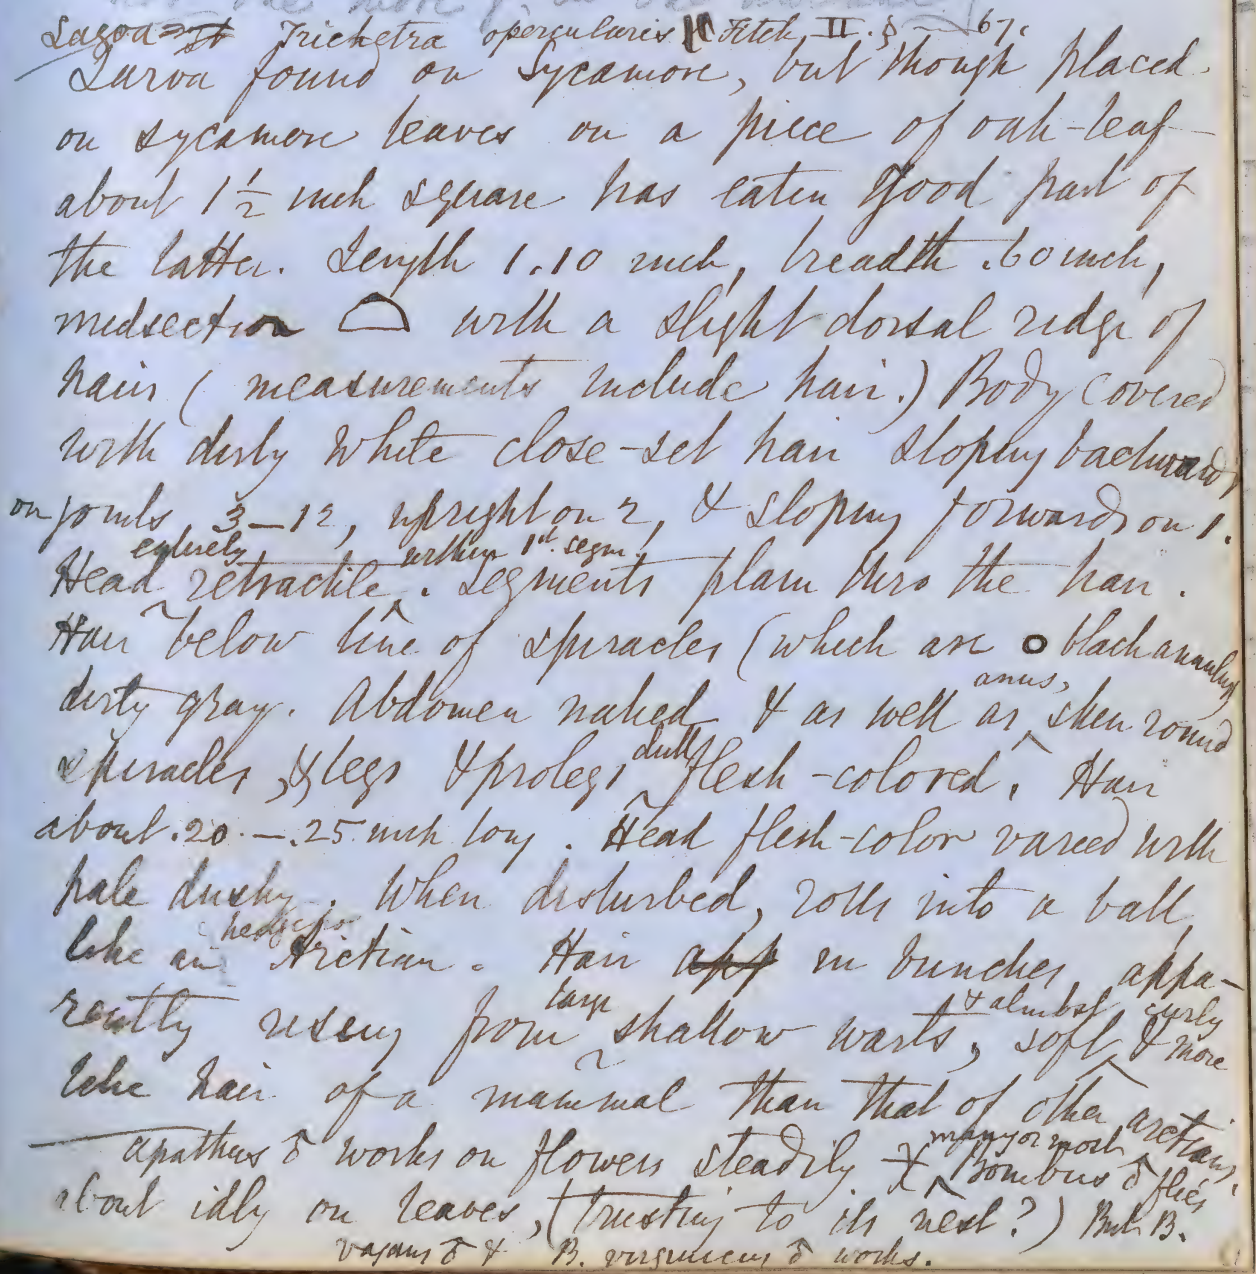 Lagoa Trichetra opercularis Fitch II. § — 67.
Larva found on Sycamore, but though placed
on sycamore leaves on a piece of oak-leaf
about 1½ inch square has eaten good part of
the latter. Length 1.10 inch, breadth .60 inch,
midsection with a slight dorsal ridge of
hair (measurements include hair.) Body covered
with dirty white close-set hair sloping backwards
on joints 3—12, upright on 2, & sloping forwards on 1.
entirely within 1st segm.
Head retractile. Segments plain thro the hair.
Hair below line of spiracles (which are o black annulus)
anus,
dirty gray. Abdomen naked & as well as skin round
dull
spiracles, & legs & prolegs flesh-colored. Hair
about .20 — .25 inch long. Head flesh-color varied with
pale dusky. When disturbed, rolls into a ball
hedgehog
like an Arctian. Hair app in bunches, appa-
large & almost curly
rently rising from shallow warts, soft & more
like hair of a mammal than that of other arctians.
many or most
Apathus ♂ works on flowers steadily. Bombus ♂ flies
about idly on leaves, (trusting to its nest?) But B.
vagans ♂ & B. virginicus ♂ works.